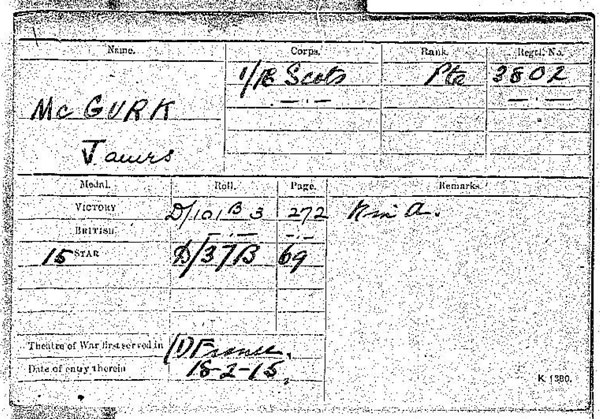 Name. Corps. Rank. Regtl. No.
1/R Scots Pte 3802
McGURK — . — — . —
James
Medal. Roll. Page. Remarks.
VICTORY D/101 B 3 272 K in A.
BRITISH — . — — . —
15 STAR D/37B 69
Theatre of War first served in (1) France.
Date of entry therein 18-2-15.
K. 1380.